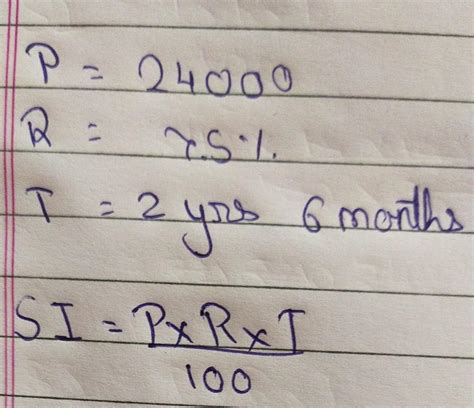 P = 24000
R = 7.5%
T = 2 yrs 6 months
SI = PxRxT
100